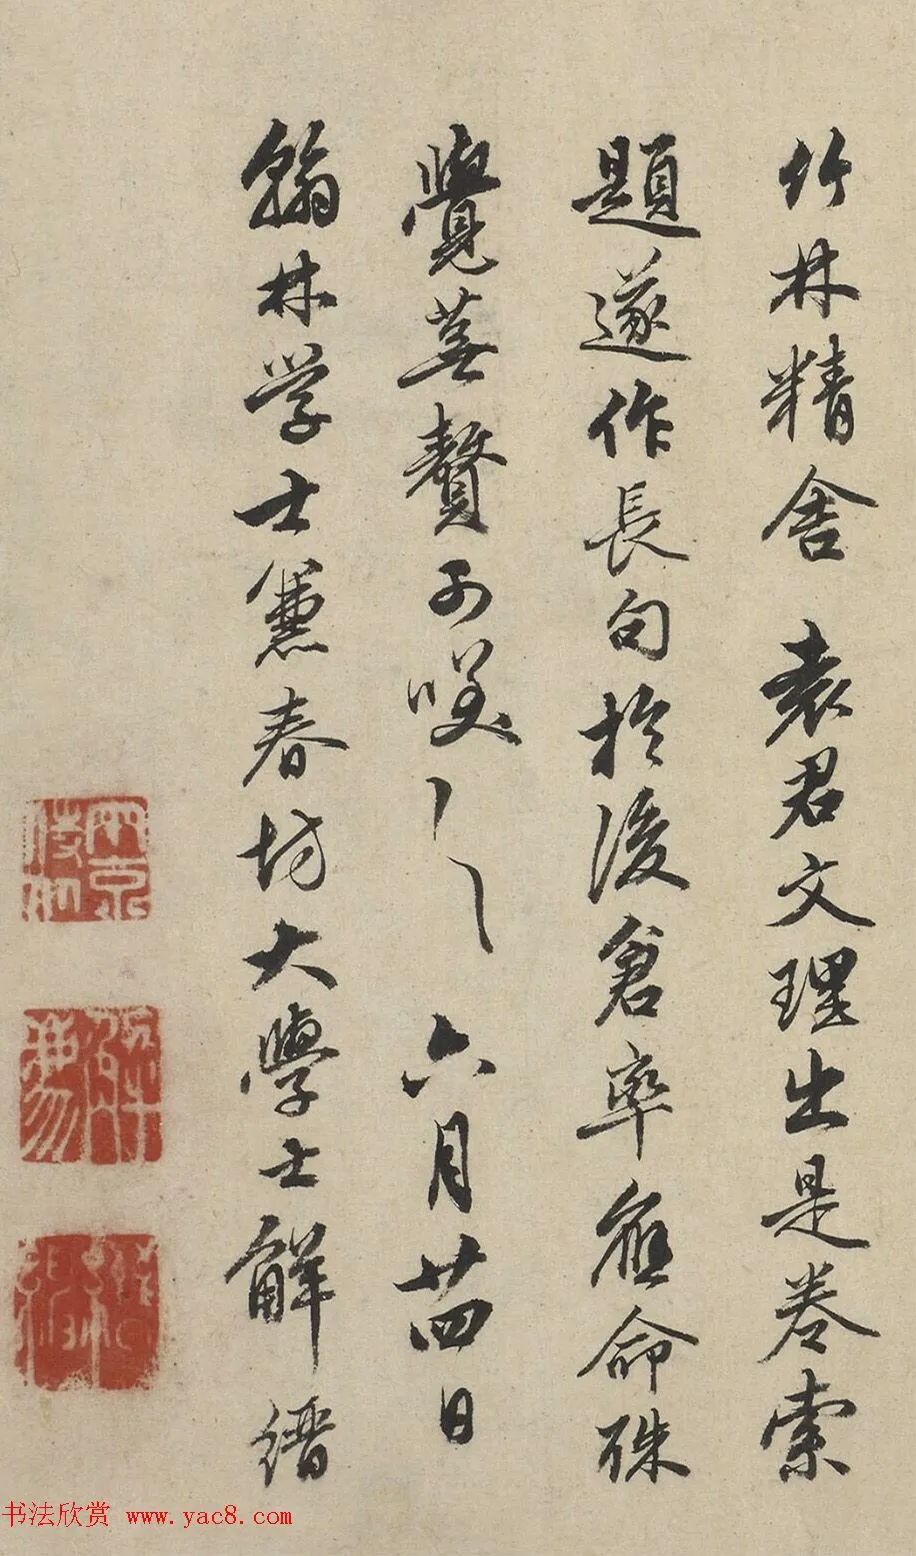 竹林精舍袁君文理出是卷索
題遂作長句於後倉率應命殊
覺蕪贅可笑〻六月廿四日
翰林学士兼春坊大學士解縉
书法欣赏 www.yac8.com